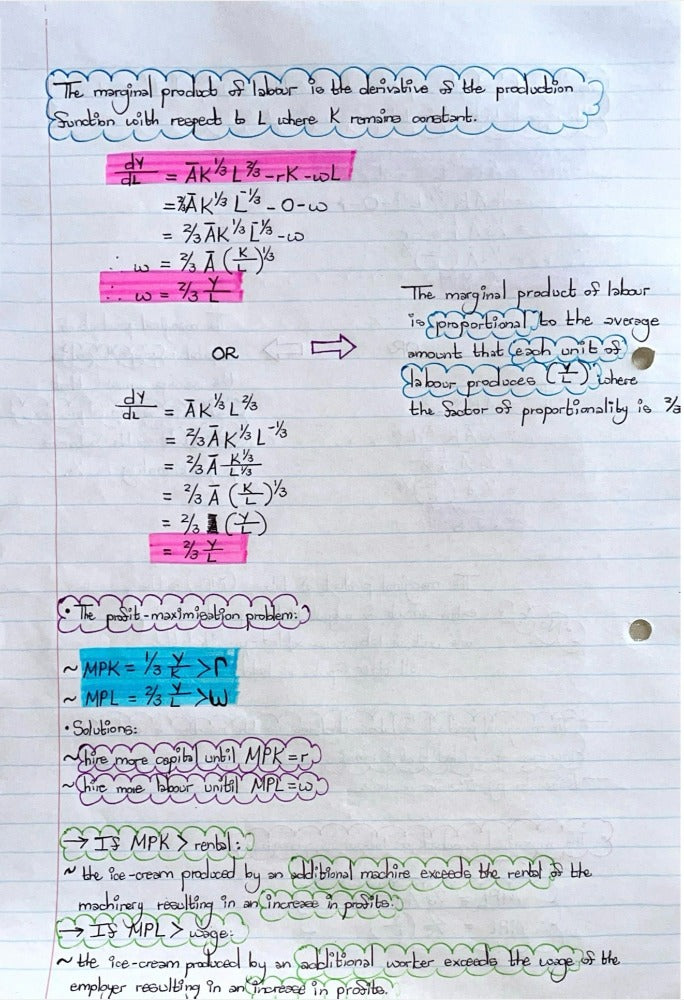 The marginal product of labour is the derivative of the production
function with respect to L where K remains constant.
dY/dL = ĀK^1/3 L^2/3 - rK - wL
= 2/3ĀK^1/3 L^-1/3 - 0 - w
= 2/3 ĀK^1/3 L^-1/3 - w
∴ w = 2/3 Ā (K/L)^1/3
∴ w = 2/3 Y/L
OR
The marginal product of labour
is proportional to the average
amount that each unit of
labour produces (Y/L) where
the factor of proportionality is 2/3
dY/dL = ĀK^1/3 L^2/3
= 2/3 ĀK^1/3 L^-1/3
= 2/3 Ā K^1/3/L^1/3
= 2/3 Ā (K/L)^1/3
= 2/3 (Y/L)
= 2/3 Y/L
• The profit-maximisation problem:
~ MPK = 1/3 Y/K > r
~ MPL = 2/3 Y/L > w
• Solutions:
~ hire more capital until MPK = r
~ hire more labour unitil MPL = w
→ If MPK > rental:
~ the ice-cream produced by an additional machine exceeds the rental of the
machinery resulting in an increase in profits.
→ If MPL > wage:
~ the ice-cream produced by an additional worker exceeds the wage of the
employer resulting in an increase in profits.